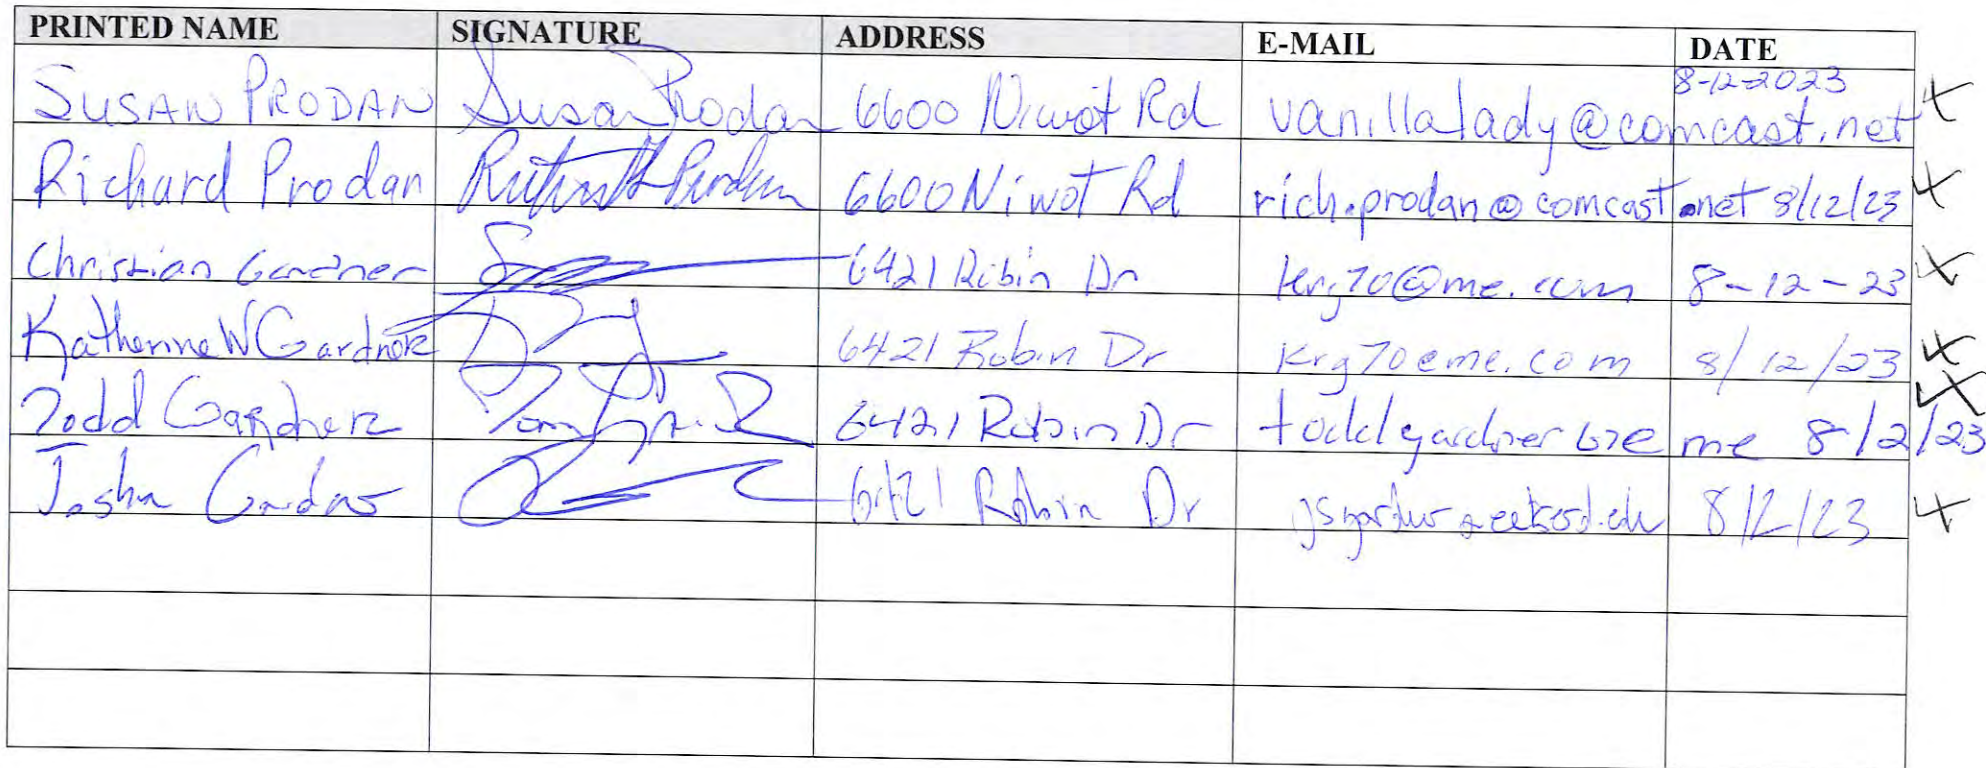 PRINTED NAME SIGNATURE ADDRESS E-MAIL DATE
SUSAN PRODAN Susan Prodan 6600 Niwot Rd vanillalady@comcast.net 8-12-2023
Richard Prodan 6600 Niwot Rd rich.prodan@comcast.net 8/12/23
Christian Gardner 6421 Robin Dr krg70@me.com 8-12-23
Katherine W Gardner 6421 Robin Dr krg70@me.com 8/12/23
Todd Gardner 6421 Robin Dr 8/12/23
Joshua Gardner 6421 Robin Dr 8/12/23